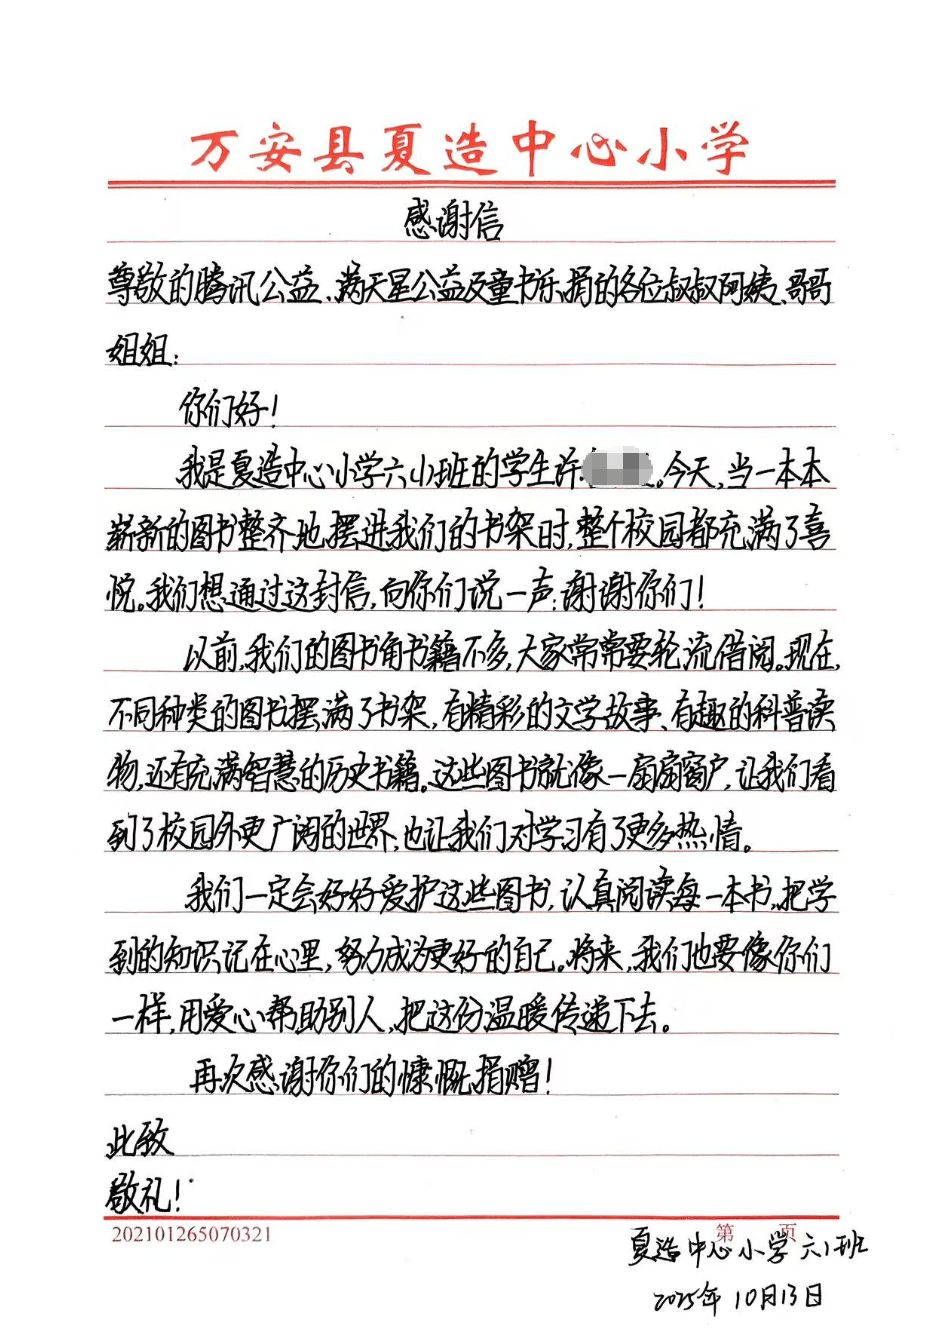 万安县夏造中心小学
感谢信
尊敬的腾讯公益、满天星公益及童书乐捐的各位叔叔阿姨、哥哥
姐姐:
你们好!
我是夏造中心小学六(1)班的学生许。今天,当一本本
崭新的图书整齐地摆进我们的书架时,整个校园都充满了喜
悦。我们想通过这封信,向你们说一声:谢谢你们!
以前,我们的图书角书籍不多,大家常常要轮流借阅。现在,
不同种类的图书摆满了书架,有精彩的文学故事、有趣的科普读
物,还有充满智慧的历史书籍。这些图书就像一扇扇窗户,让我们看
到了校园外更广阔的世界,也让我们对学习有了更多热情。
我们一定会好好爱护这些图书,认真阅读每一本书,把学
到的知识记在心里,努力成为更好的自己。将来,我们也要像你们
一样,用爱心帮助别人,把这份温暖传递下去。
再次感谢你们的慷慨捐赠!
此致
敬礼!
202101265070321 第 页
夏造中心小学六(1)班
2025年10月13日